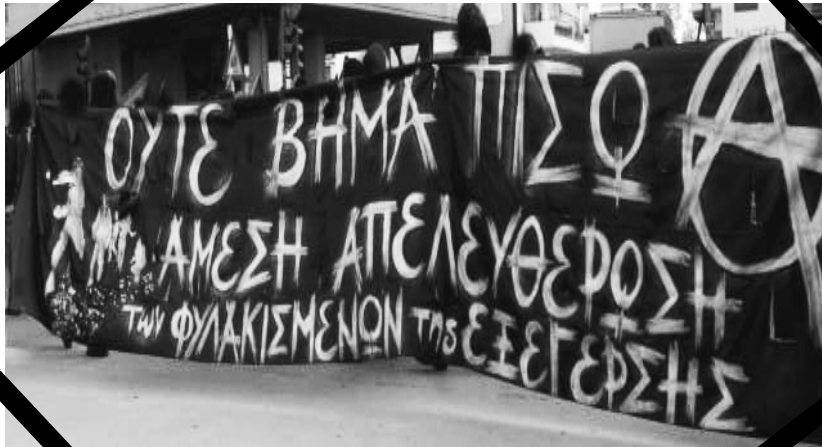 ΟΥΤΕ ΒΗΜΑ ΠΙΣΩ
ΑΜΕΣΗ ΑΠΕΛΕΥΘΕΡΩΣΗ
των ΦΥΛΑΚΙΣΜΕΝΩΝ της ΕΞΕΓΕΡΣΗΣ